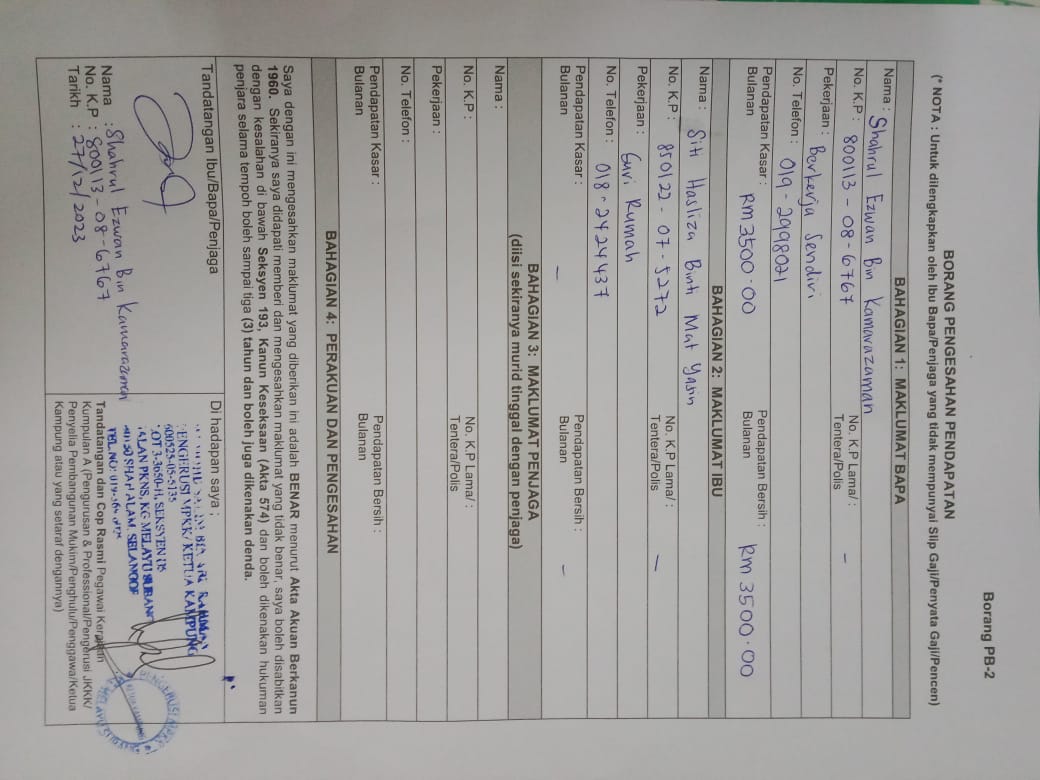 Borang PB-2
BORANG PENGESAHAN PENDAPATAN
(* NOTA : Untuk dilengkapkan oleh Ibu Bapa/Penjaga yang tidak mempunyai Slip Gaji/Penyata Gaji/Pencen)
BAHAGIAN 1: MAKLUMAT BAPA
Nama : Shahrul Ezwan Bin Kamarazaman
No. K.P : 800113 - 08 - 6767 No. K.P Lama/ : -
Tentera/Polis
Pekerjaan : Berkerja Sendiri
No. Telefon : 019 - 2998021
Pendapatan Kasar : RM 3500.00 Pendapatan Bersih : RM 3500.00
Bulanan Bulanan
BAHAGIAN 2: MAKLUMAT IBU
Nama : Siti Hasliza Binti Mat Yasin
No. K.P : 850122 - 07 - 5272 No. K.P Lama/ : -
Tentera/Polis
Pekerjaan : Suri Rumah
No. Telefon : 018 - 2424437
Pendapatan Kasar : - Pendapatan Bersih : -
Bulanan Bulanan
BAHAGIAN 3: MAKLUMAT PENJAGA
(diisi sekiranya murid tinggal dengan penjaga)
Nama :
No. K.P : No. K.P Lama/ :
Tentera/Polis
Pekerjaan :
No. Telefon :
Pendapatan Kasar : Pendapatan Bersih :
Bulanan Bulanan
BAHAGIAN 4: PERAKUAN DAN PENGESAHAN
Saya dengan ini mengesahkan maklumat yang diberikan ini adalah BENAR menurut Akta Akuan Berkanun
1960. Sekiranya saya didapati memberi dan mengesahkan maklumat yang tidak benar, saya boleh disabitkan
dengan kesalahan di bawah Seksyen 193, Kanun Keseksaan (Akta 574) dan boleh dikenakan hukuman
penjara selama tempoh boleh sampai tiga (3) tahun dan boleh juga dikenakan denda.
Tandatangan Ibu/Bapa/Penjaga
Nama : Shahrul Ezwan Bin Kamarazaman
No. K.P : 800113 - 08 - 6767
Tarikh : 27/12/2023
Di hadapan saya ;
PENGERUSI MPKK/ KETUA KAMPUNG
600525-05-5135
LOT 3-3650-H, SEKSYEN U6
JALAN PKNS, KG. MELAYU SUBANG
40150 SHAH ALAM, SELANGOR
TEL.NO: 019-
Tandatangan dan Cop Rasmi Pegawai Kerajaan
Kumpulan A (Pengurusan & Professional/Pengerusi JKKK/
Penyelia Pembangunan Mukim/Penghulu/Penggawa/Ketua
Kampung atau yang setaraf dengannya)